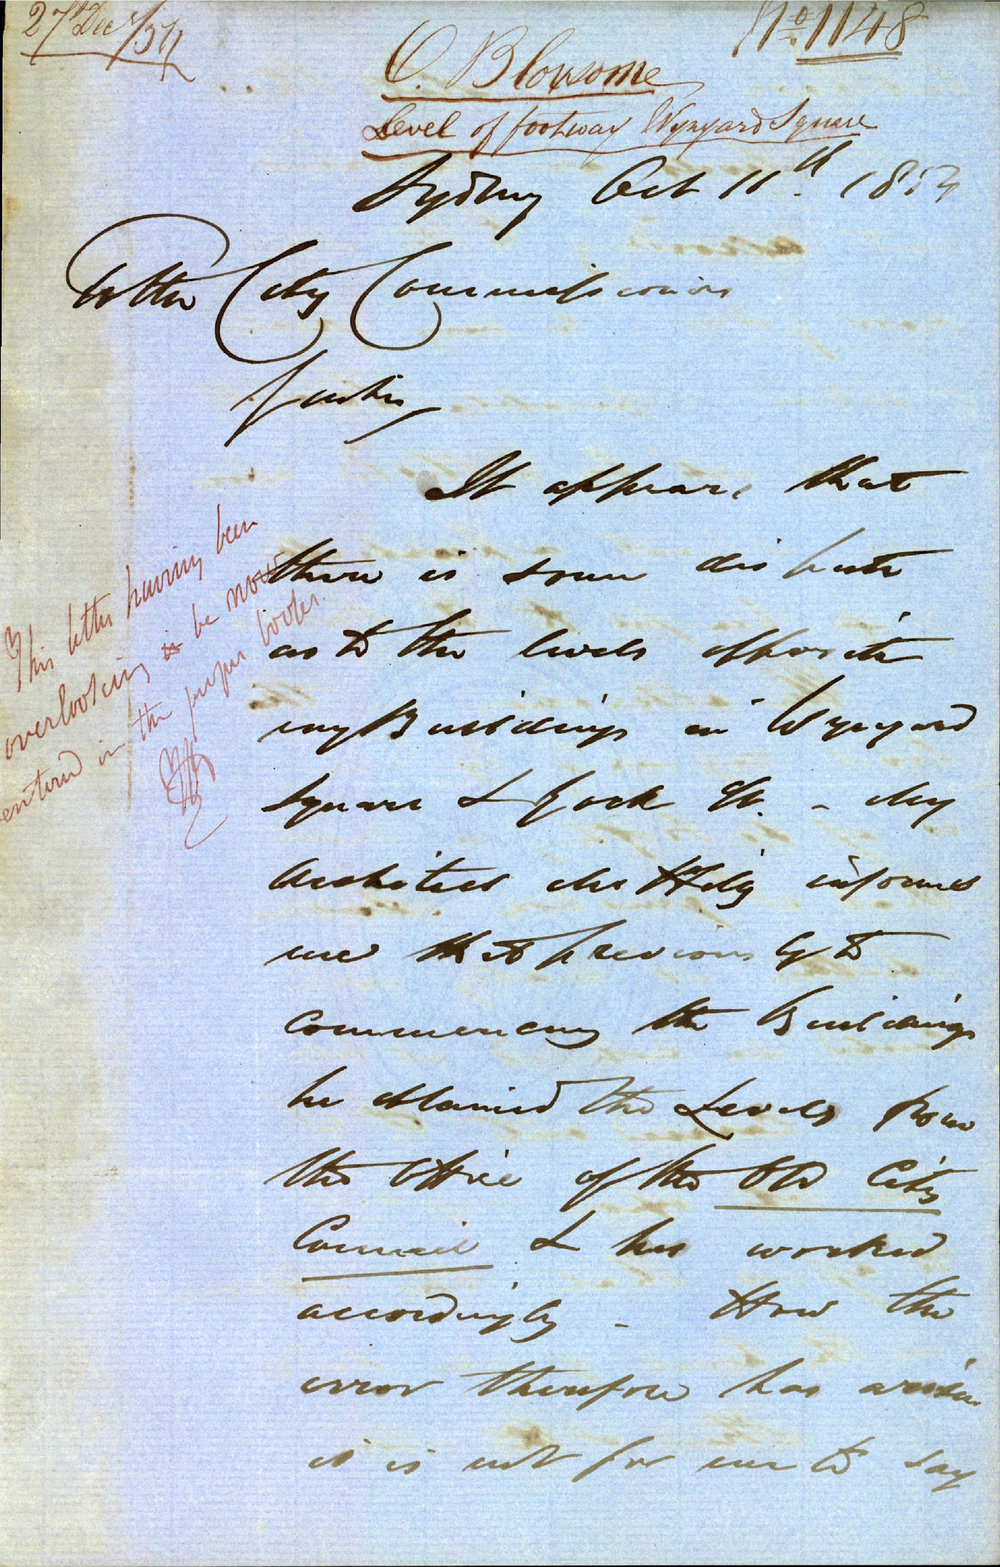 27th Decr/54
No 1148
O. Blowsome
Level of footway Wynyard Square
Sydney Oct 11th 1854
To the City Commissioners
Gentn
It appears that
there is some dispute
as to the levels opposite
my Buildings in Wynyard
Square & York St. - My
Architect Mr Hilly informs
me that previously to
commencing the Buildings
he obtained the Levels from
the Office of the Old City
Council & has worked
accordingly - How the
error therefore has arisen
it is not for me to say
This letter having been
overlooking is be now
entered in the proper books.